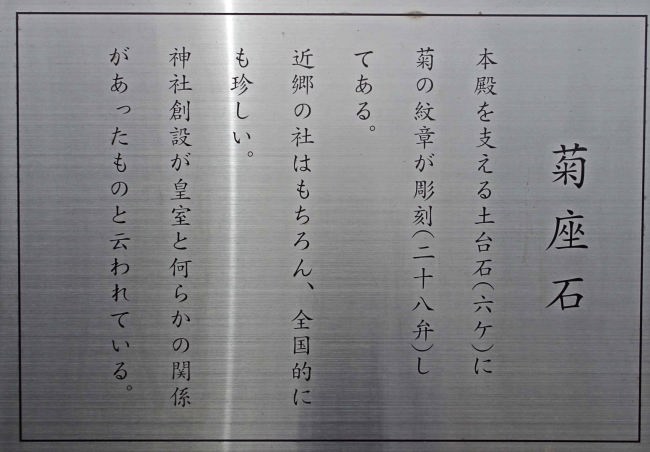 菊座石
本殿を支える土台石(六ケ)に
菊の紋章が彫刻(二十八弁)し
てある。
近郷の社はもちろん、全国的に
も珍しい。
神社創設が皇室と何らかの関係
があったものと云われている。